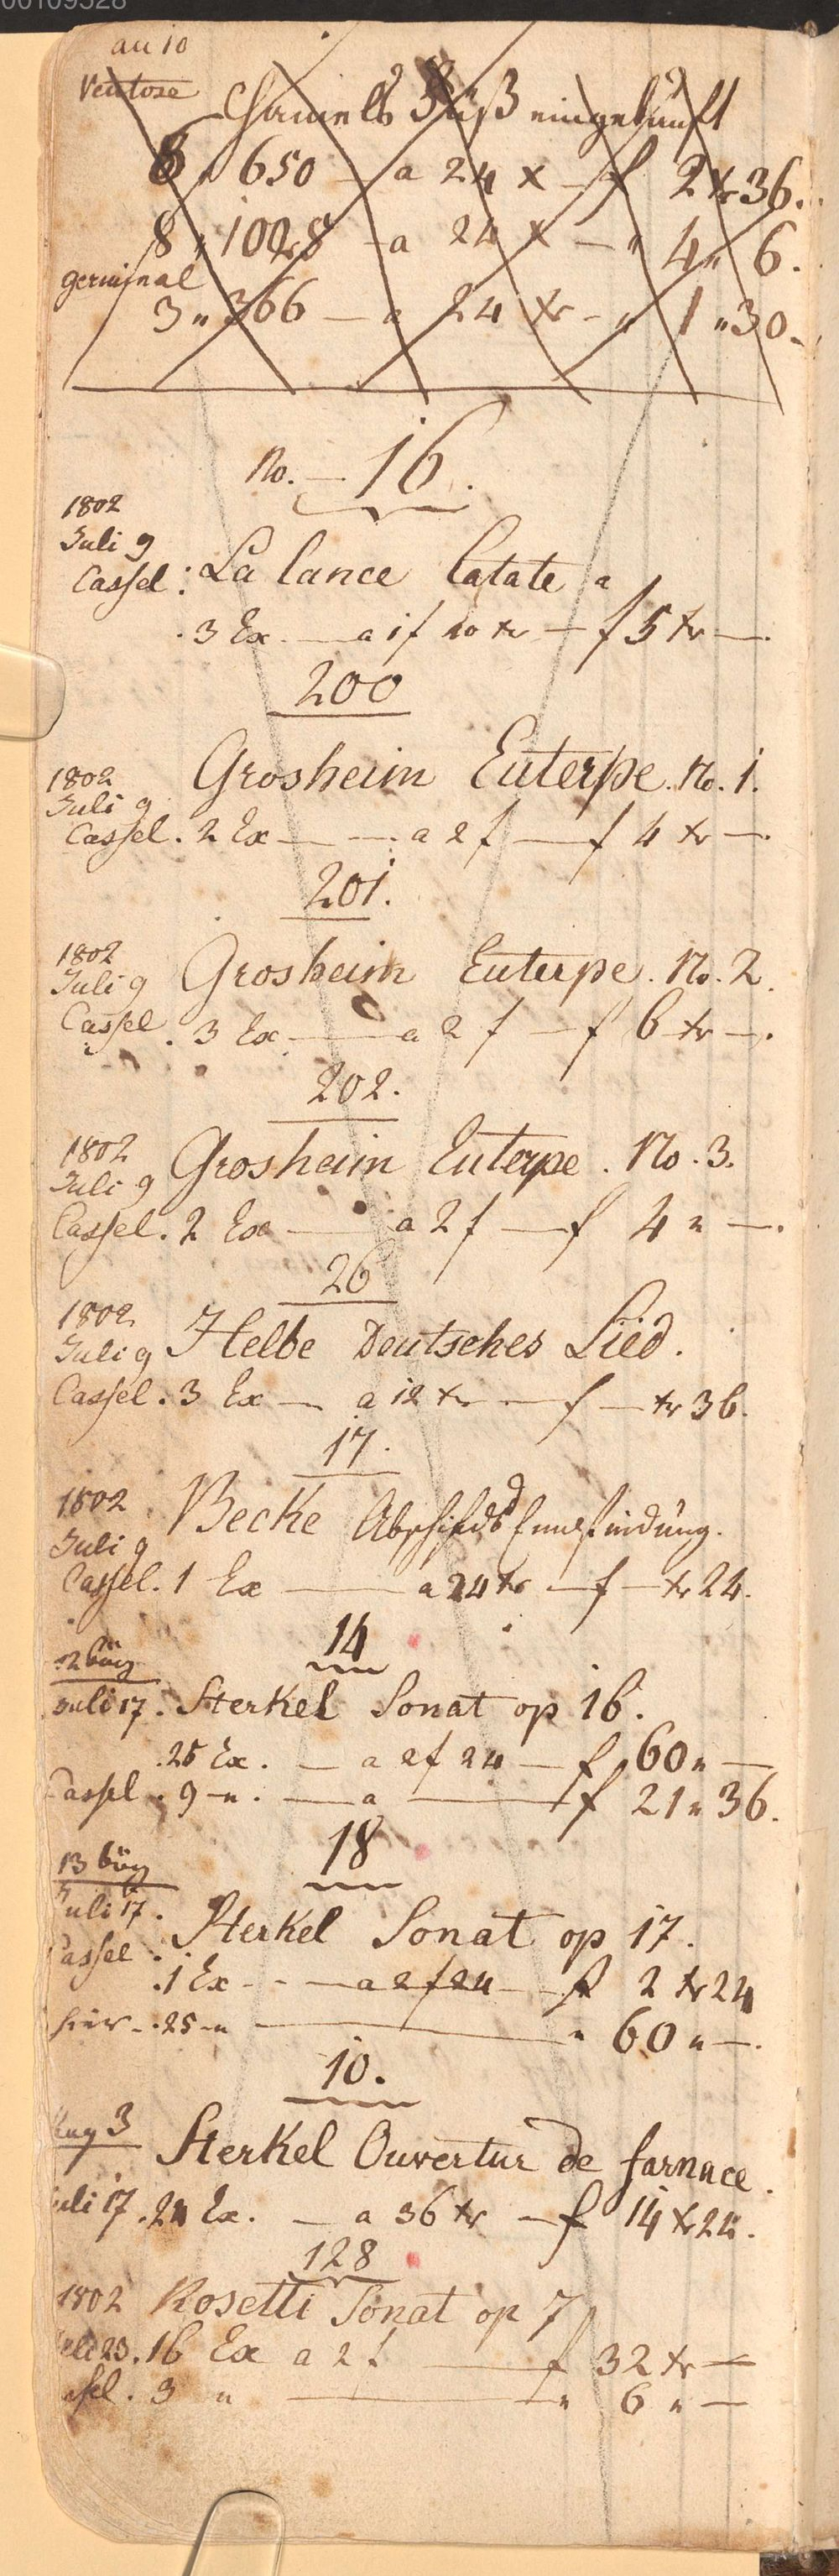 00109528
au 10
Ventose
eingekauft
8 " 650 — a 24 x — f 2 xr 36.
8 " 1028 — a 24 x — " 4 " 6.
germinal
3 " 366 — a 24 xr — " 1 " 30.
No. — 16.
1802
Juli 9
Cassel : La lance Catate a
3 Ex — a 1 f 40 xr — f 5 xr —.
200
1802 Grosheim Euterpe. No. 1.
Juli 9
Cassel. 2 Ex — — a 2 f — f 4 xr —.
201.
1802
Juli 9 Grosheim Euterpe. No. 2.
Cassel. 3 Ex — a 2 f — f 6 xr —.
202.
1802
Juli 9 Grosheim Euterpe. No. 3.
Cassel. 2 Ex — a 2 f — f 4 " —.
26
1802
Juli 9 Helbe Deutsches Lied.
Cassel. 3 Ex — a 12 xr — f — xr 36.
17.
1802 Becke Abschieds Empfindung.
Juli 9
Cassel. 1 Ex — a 24 xr — f — xr 24.
14
Juli 17. Sterkel Sonat op 16.
25 Ex. — a 2 f 24 — f 60 " —
Cassel. 9 — " . — a — f 21 " 36.
18
Juli 17.
Cassel. Sterkel Sonat op 17.
1 Ex — a 2 f 24 — f 2 xr 24
hier — 25 — " — " 60 " —.
10.
Aug 3 Sterkel Ouvertur de farnace.
Juli 17. 24 Ex. — a 36 xr — f 14 xr 24.
128
1802 Rosetti Sonat op 7
23. 16 Ex a 2 f — f 32 xr —
3 " — " 6 " —